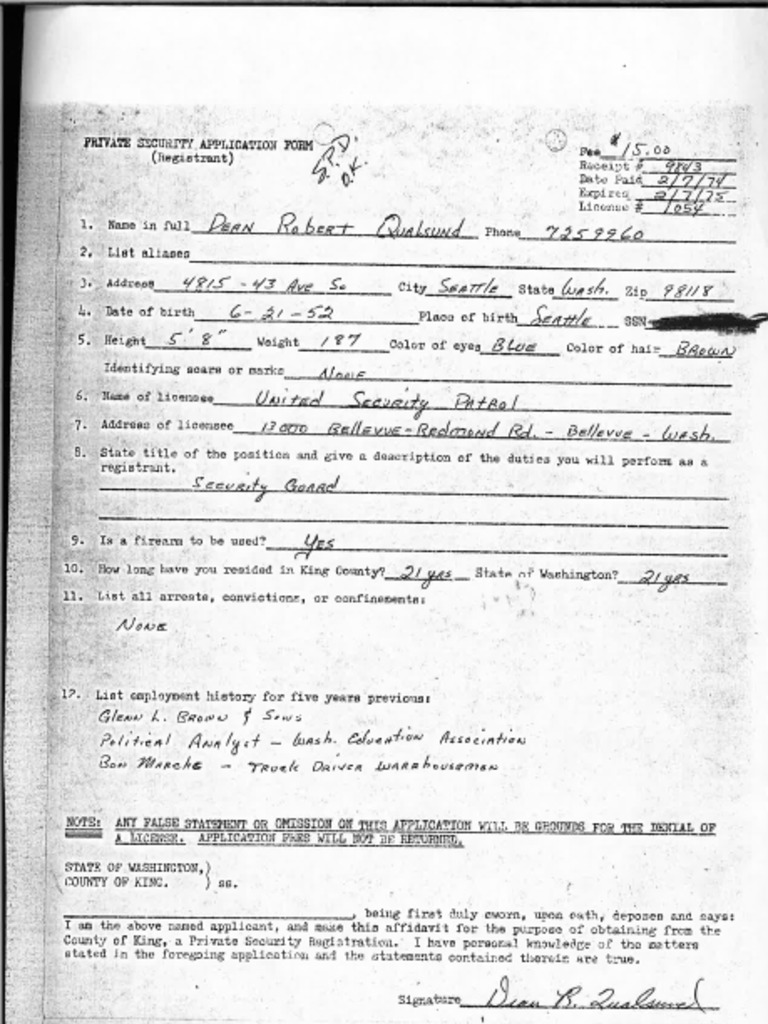 PRIVATE SECURITY APPLICATION FORM
(Registrant)
S.P.D.
O.K.
Fee $15.00
Receipt # 9843
Date Paid 2/7/74
Expires 2/7/75
License # 1054
1. Name in full Dean Robert Qualsund Phone 7259960
2. List aliases
3. Address 4815 - 43 Ave So City Seattle State Wash. Zip 98118
4. Date of birth 6-21-52 Place of birth Seattle SSN
5. Height 5' 8" Weight 187 Color of eyes Blue Color of hair Brown
Identifying scars or marks None
6. Name of licensee United Security Patrol
7. Address of licensee 13000 Bellevue-Redmond Rd. - Bellevue - Wash.
8. State title of the position and give a description of the duties you will perform as a
registrant.
Security Guard
9. Is a firearm to be used? Yes
10. How long have you resided in King County? 21 yrs State of Washington? 21 yrs
11. List all arrests, convictions, or confinements:
None
12. List employment history for five years previous:
Glenn L. Brown & Sons
Political Analyst - Wash. Education Association
Bon Marche - Truck Driver Warehouseman
NOTE: ANY FALSE STATEMENT OR OMISSION ON THIS APPLICATION WILL BE GROUNDS FOR THE DENIAL OF
A LICENSE. APPLICATION FEES WILL NOT BE RETURNED.
STATE OF WASHINGTON,)
COUNTY OF KING. ) ss.
, being first duly sworn, upon oath, deposes and says:
I am the above named applicant, and make this affidavit for the purpose of obtaining from the
County of King, a Private Security Registration. I have personal knowledge of the matters
stated in the foregoing application and the statements contained therein are true.
Signature Dean R. Qualsund